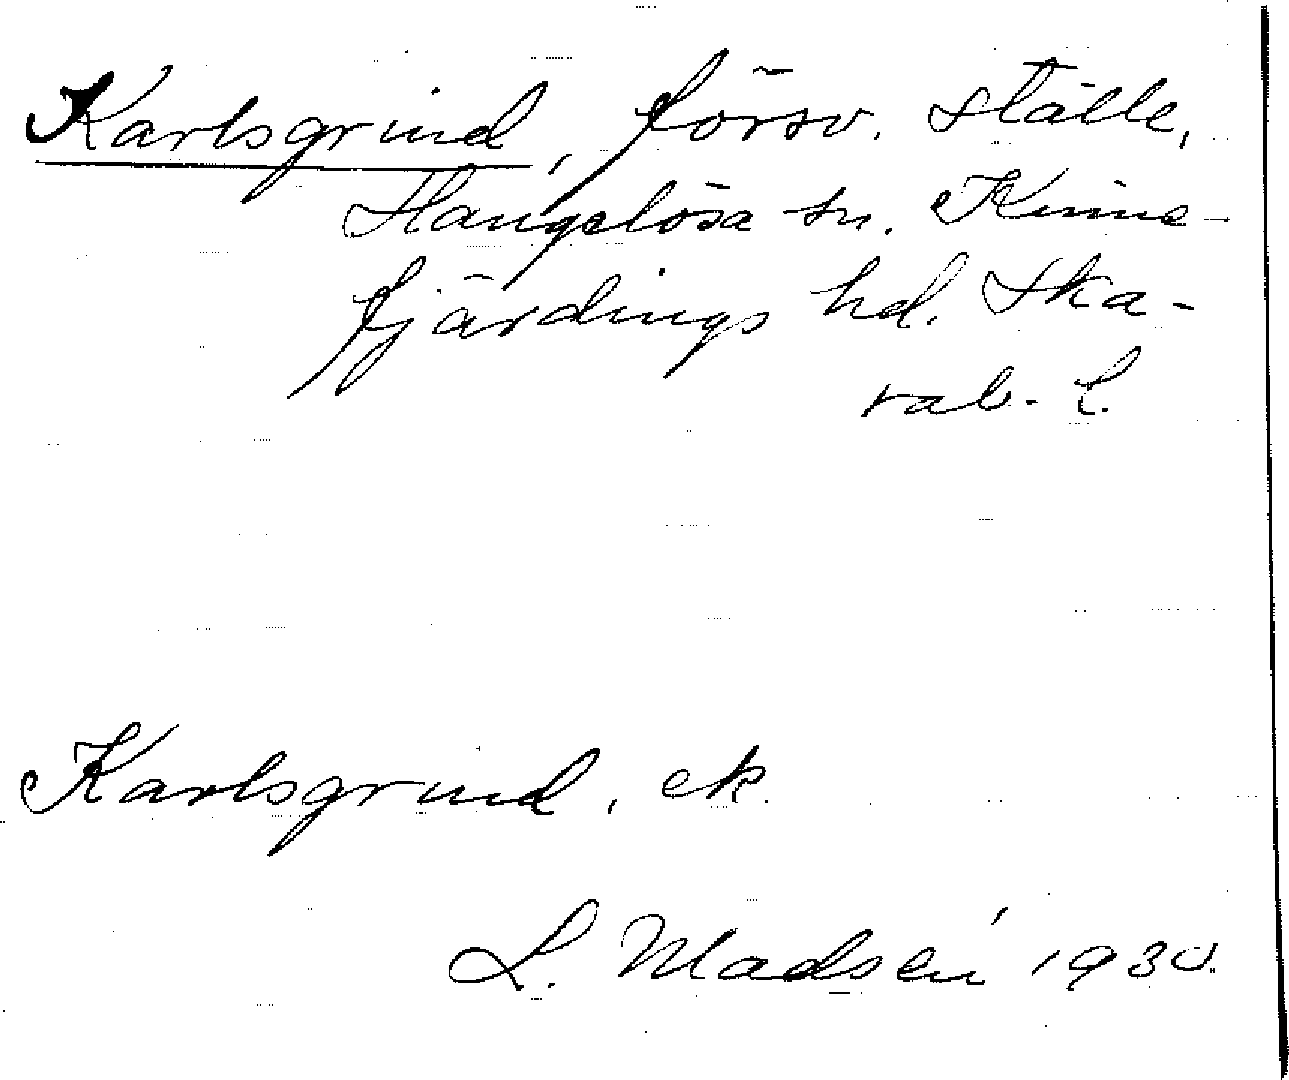 Karlsgrind, försv. ställe,
Hangelösa sn. Kinne-
fjärdings hd. Ska-
rab. L.
Karlsgrind, ek.
L. Madsén 1930.